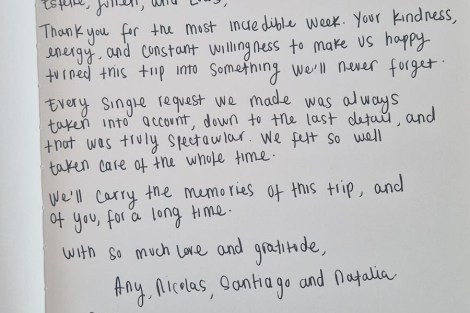 Estelle, Julien, and
Thank you for the most incredible week. Your kindness,
energy, and constant willingness to make us happy
turned this trip into something we'll never forget.
Every single request we made was always
taken into account, down to the last detail, and
that was truly spectacular. We felt so well
taken care of the whole time.
We'll carry the memories of this trip, and
of you, for a long time.
With so much love and gratitude,
Any, Nicolas, Santiago and Natalia